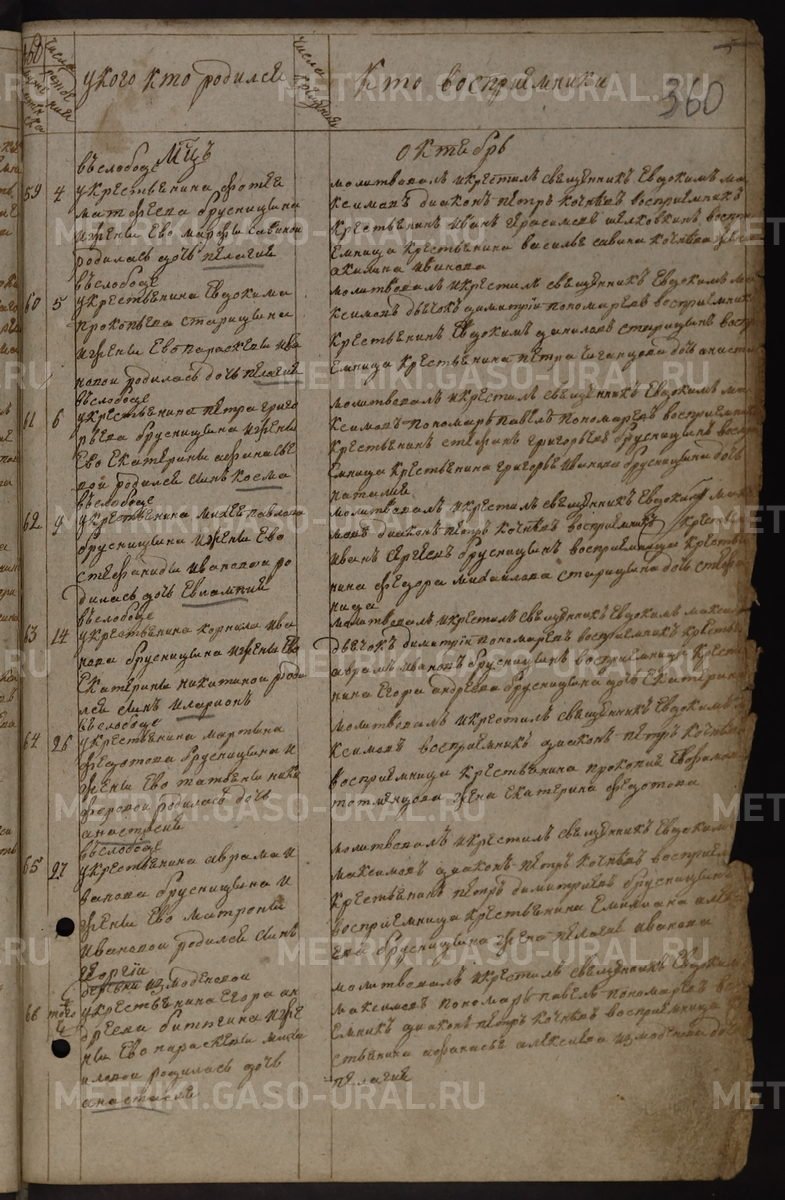 360
Числа рожденїй
у кого кто родился
Числа
Кто восприемники
360
Мцъ
октябрь
въ слободе
59 4 у крестьянина фотея
матфеева брусницына
и жены ево марфы савиной
родилась дочь пелагия
молитвовалъ и крестилъ священникъ Евдокимъ ма
ксимовъ диаконъ петръ кочневъ восприемникъ
крестьянинъ иванъ герасимовъ воспри
емница крестьянина василья савина кочнева
акилина иванова
въ слободе
60 5 у крестьянина Евдокима
прокопьева старицына
и жены Ево параскевы ива
новой родилась дочь пелагия
молитвовалъ и крестилъ священникъ Евдокимъ ма
ксимовъ дьячокъ димитрїи пономаревъ восприемникъ
крестьянинъ Евдокимъ даниловъ старицынъ воспри
емница крестьянина петра дочь анаста
въ слободе
61 6 у крестьянина петра григо
рьева брусницына и жены
Ево Екатерины афанасье
вой родился сынъ косма
молитвовалъ и крестилъ священникъ Евдокимъ ма
ксимовъ пономарь павелъ пономаревъ восприемникъ
крестьянинъ стефанъ григорьевъ брусницынъ воспри
емница крестьянина григорья иванова брусницына дочь
наталия
въ слободе
62 9 у крестьянина михея павлова
брусницына и жены Ево
стефаниды ивановой ро
дилась дочь Евлампия
молитвовалъ и крестилъ священникъ Евдокимъ макси
мовъ диаконъ петръ кочневъ восприемникъ крестья
иванъ брусницынъ восприемница крестья
нина федора михаилова старицына дочь стефа
нида
въ слободе
63 14 у крестьянина корнила ива
нова брусницына и жены Ево
Екатерины никитиной роди
лся сынъ иларионъ
молитвовалъ и крестилъ священникъ Евдокимъ макси
дьячокъ димитрїи пономаревъ восприемникъ крестья
аврамъ ивановъ брусницынъ восприемница крестья
нина Егора андреева брусницына дочь Екатерина
въ слободе
64 26 у крестьянина мартына
федотова брусницына и
жены Ево татьяны ники
форовой родилась дочь
анастасия
молитвовалъ и крестилъ священникъ Евдокимъ ма
ксимовъ восприемникъ диаконъ петръ кочневъ
восприемница крестьянина прокопия
жена Екатерина федотова
въ слободе
65 27 у крестьянина аврама и
ванова брусницына и
жены Ево матроны
ивановой родился сынъ
георгїи
молитвовалъ и крестилъ священникъ Евдокимъ
максимовъ диаконъ петръ кочневъ восприем
крестьянинъ петръ димитриевъ брусницынъ
восприемница крестьянина Емилиана алек
ева брусницына жена пелагия иванова
деревни измоденовой
66 того ч у крестьянина Егора ан
дреева битюгина и же
ны Ево параскевы миха
иловой родилась дочь
анастасия
молитвовалъ и крестилъ священникъ Евдокимъ
максимовъ пономарь павелъ пономаревъ воспри
емникъ диаконъ петръ кочневъ восприемница кре
стьянина афанасья алексиева измоденова дочь
пелагия
METRIKI.GASO-URAL.RU